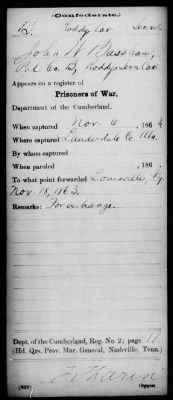 Confederate.
B Roddy's Cav. Tenn.
John H. Bressham,
Pvt Co. B, Roddy's Tenn Cav.
Appears on a register of
Prisoners of War,
Department of the Cumberland.
When captured Nov. 6, 186
Where captured Lauderdale Co. Ala.
By whom captured
When paroled , 186 .
To what point forwarded Louisville, Ky.
Nov. 18, 186
Remarks: For exchange.
Dept. of the Cumberland, Reg. No. 2; page 17
(Hd. Qrs. Prov. Mar. General, Nashville, Tenn.)
Copyist.